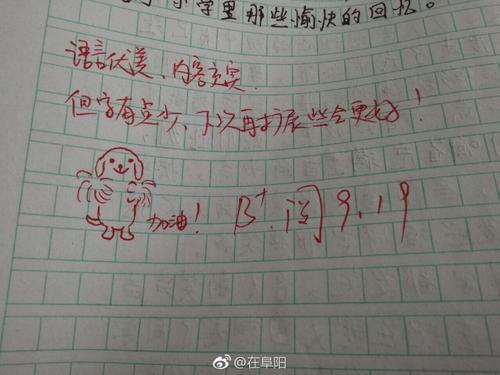 学里那些愉快的回忆。
语言优美、内容充实
但字有点少、下次再扩展些会更好！
加油！
B+ 阅 9.19
@在阜阳